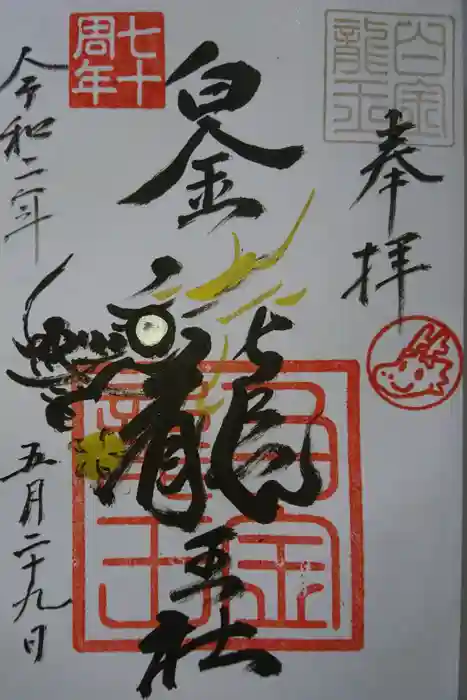 白金
龍王
奉拝
白金龍王社
白金
龍王
七十
周年
令和二年
五月二十九日